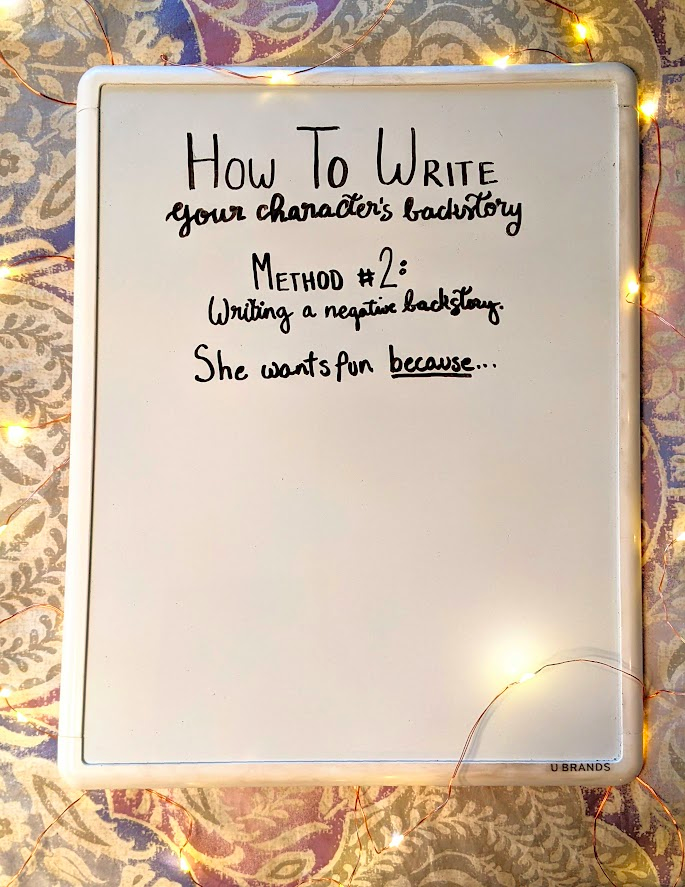 How To Write
your character's backstory
Method #2:
Writing a negative backstory.
She wants fun because...
U BRANDS